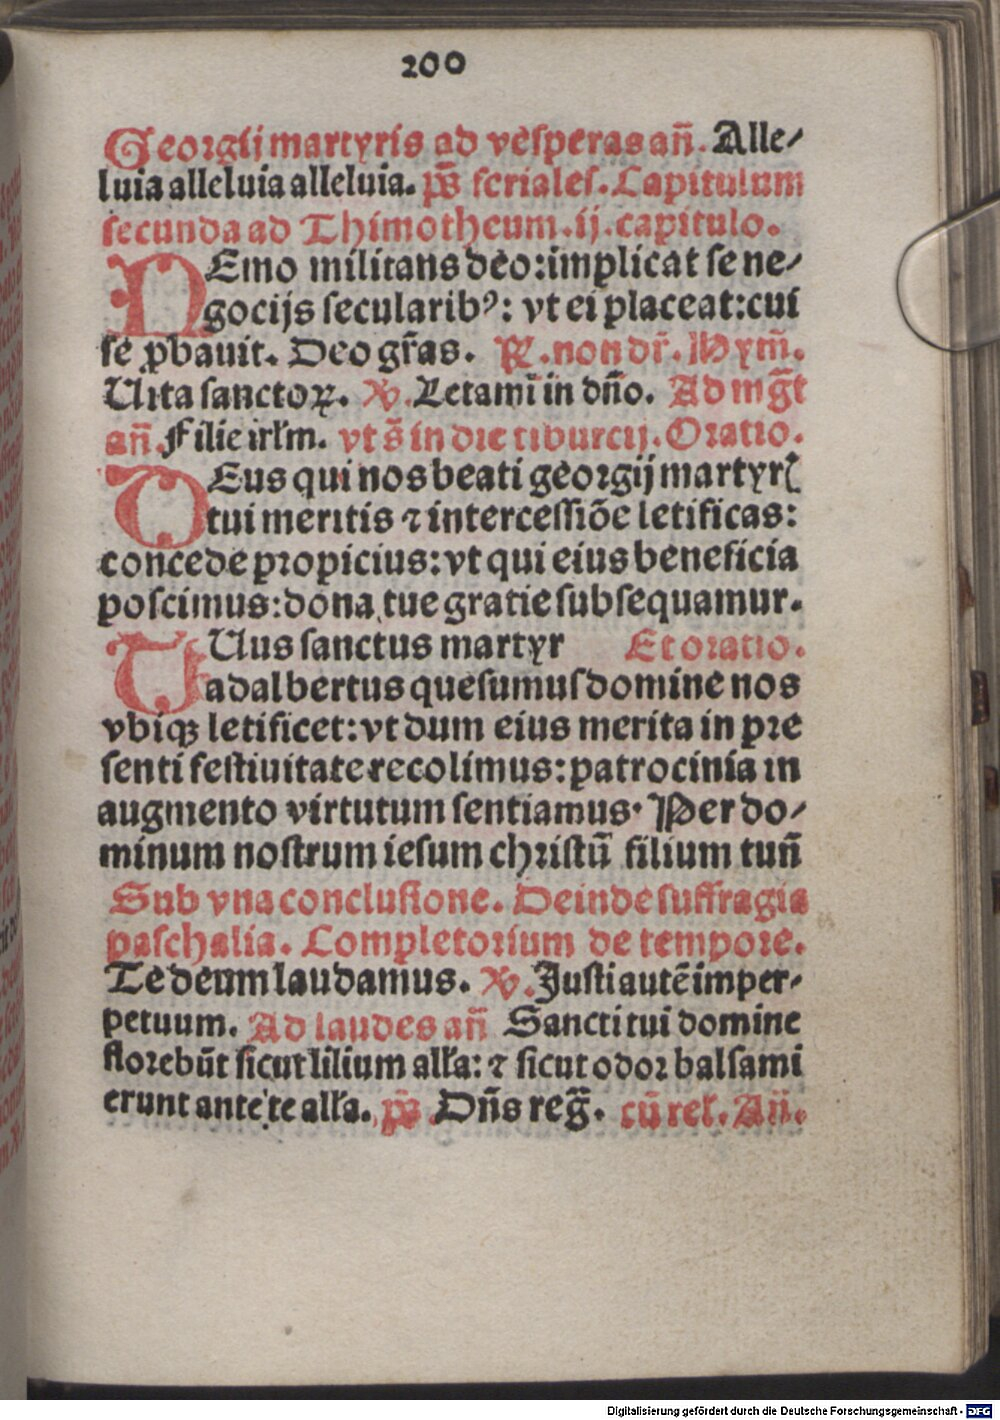 200
Georgij martyris ad vesperas an̄. Alle/
luia alleluia alleluia. ps̄ feriales. Capitulum
secunda ad Thimotheum .ij. capitulo.
NEmo militans deo: implicat se ne/
gocijs secularibꝰ: vt ei placeat: cui
se ꝓbauit. Deo gr̄as. ℟. non dr̄. Hym̄.
Uita sanctoꝝ. ℣. Letami in dn̄o. Ad mḡt
an̄. Filie irłm. vt s̄ in die tiburcij. Oratio.
DEus qui nos beati georgij martyrꝭ
tui meritis ⁊ intercessiōe letificas:
concede propicius: vt qui eius beneficia
poscimus: dona tue gratie subsequamur.
TUus sanctus martyr Et oratio.
adalbertus quesumus domine nos
vbiqꝫ letificet: vt dum eius merita in pre
senti festiuitate recolimus: patrocinia in
augmento virtutum sentiamus. Per do/
minum nostrum iesum christū filium tuū
Sub vna conclusione. Deinde suffragia
paschalia. Completorium de tempore.
Te deum laudamus. ℣. Justi autē imper/
petuum. Ad laudes an̄ Sancti tui domine
florebūt sicut lilium ałła: ⁊ sicut odor balsami
erunt ante te ałła. ps̄. Dn̄s reḡ. cū rel. An̄.
Digitalisierung gefördert durch die Deutsche Forschungsgemeinschaft - DFG